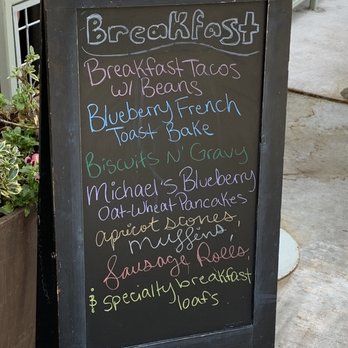 Breakfast
Breakfast Tacos
w/ Beans
Blueberry French
Toast Bake
Biscuits N' Gravy
Michael's Blueberry
Oat-Wheat Pancakes
apricot scones,
muffins,
Sausage Rolls,
& Specialty breakfast
loafs.